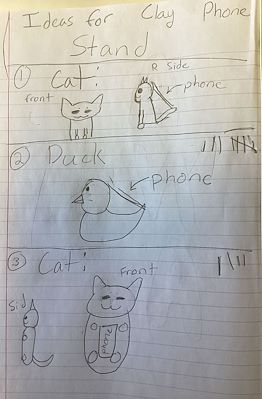 Ideas for Clay Phone
Stand
① Cat:
R Side
front
phone
② Duck
phone
③ Cat:
Front
Side
phone